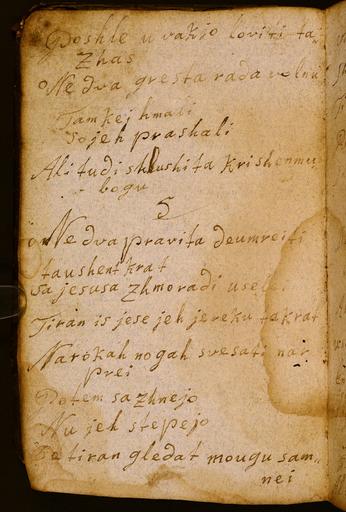 Doshle u vakjo loviti ta
zhas
One dva gresta rada volnu
Tam kej hmali
So jeh prashali
Ali tudi shlushita krishenmu
bogu
5
One dva pravita de umreiti
taushent krat
Sa jesusa zhmoradi usele
Tiran is jese jeh je reku ta krat
Na rokah nogah svesati nar
prei
Potem sa zhnejo
Nu jeh stepejo
Se tiran gledat mougu sam
nei